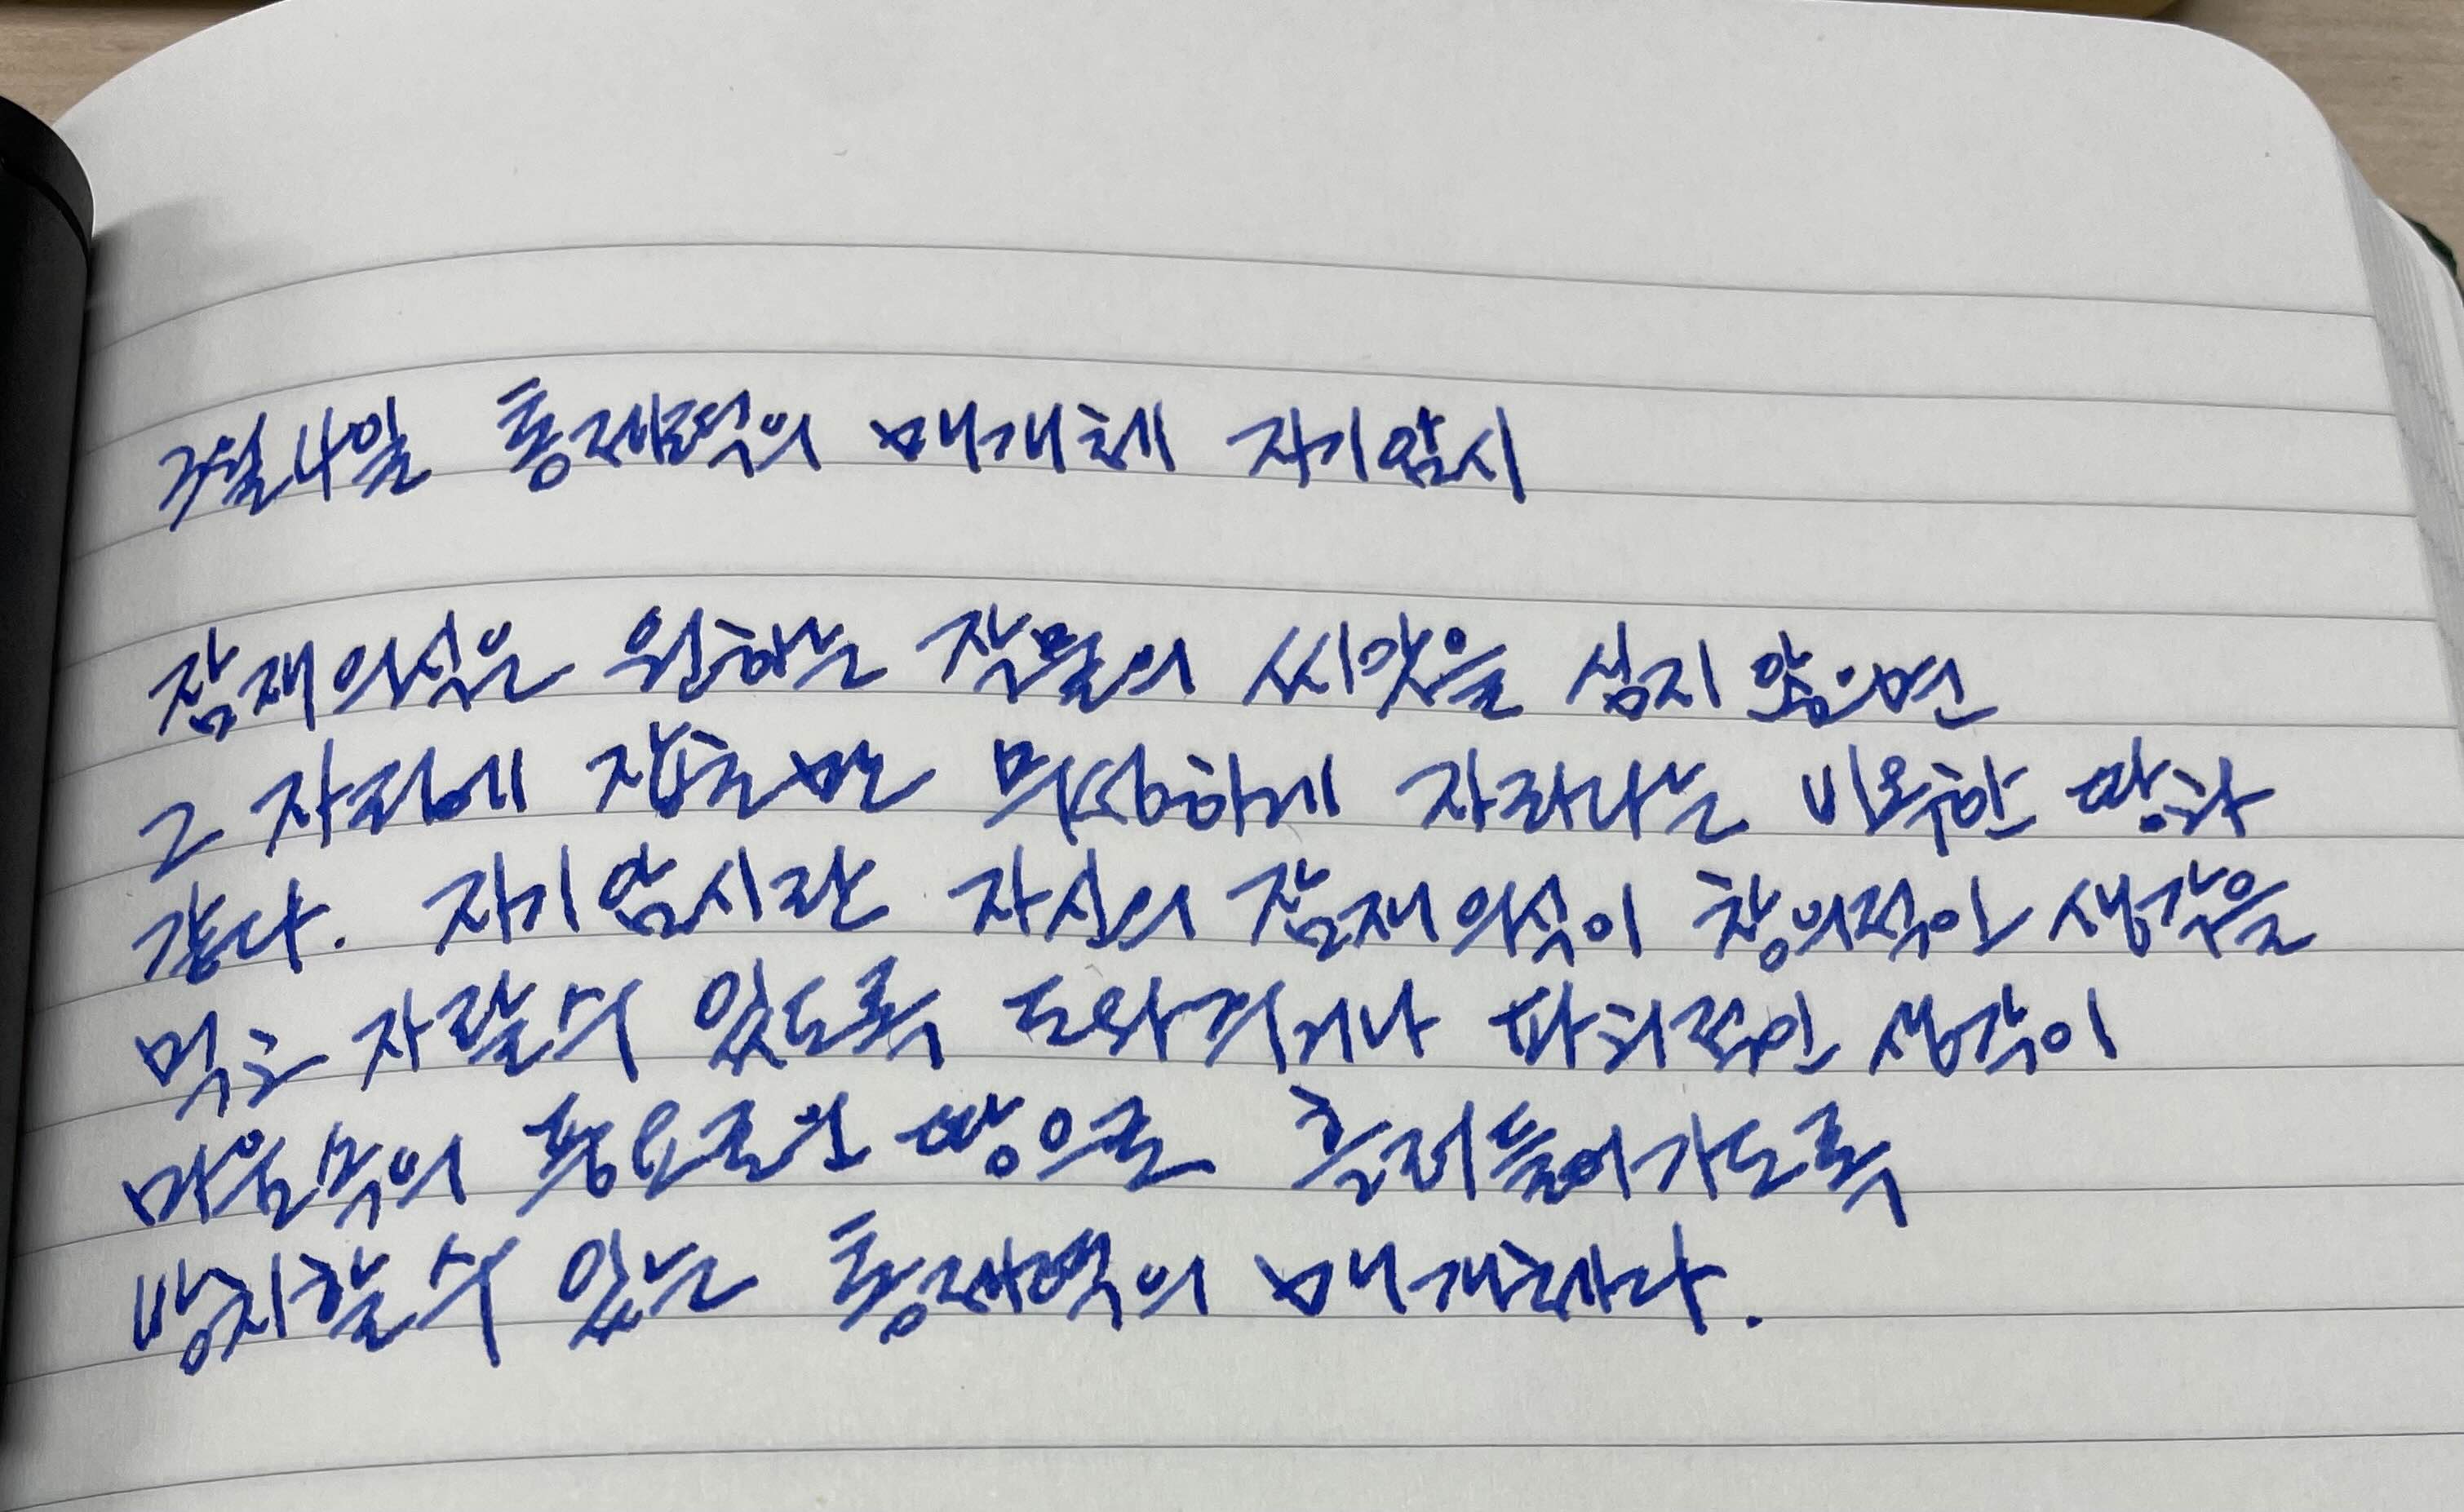 7월 4일 통제력의 매개체 자기암시
잠재의식은 원하는 작물의 씨앗을 심지 않으면
그 자리에 잡초만 무성하게 자라나는 비옥한 땅과
같다. 자기암시란 자신의 잠재의식이 창의적인 생각을
먹고 자랄 수 있도록 도와주거나 파괴적인 생각이
마음속의 풍요로운 땅으로 흘러들어가도록
방치할 수 있는 통제력의 매개체다.